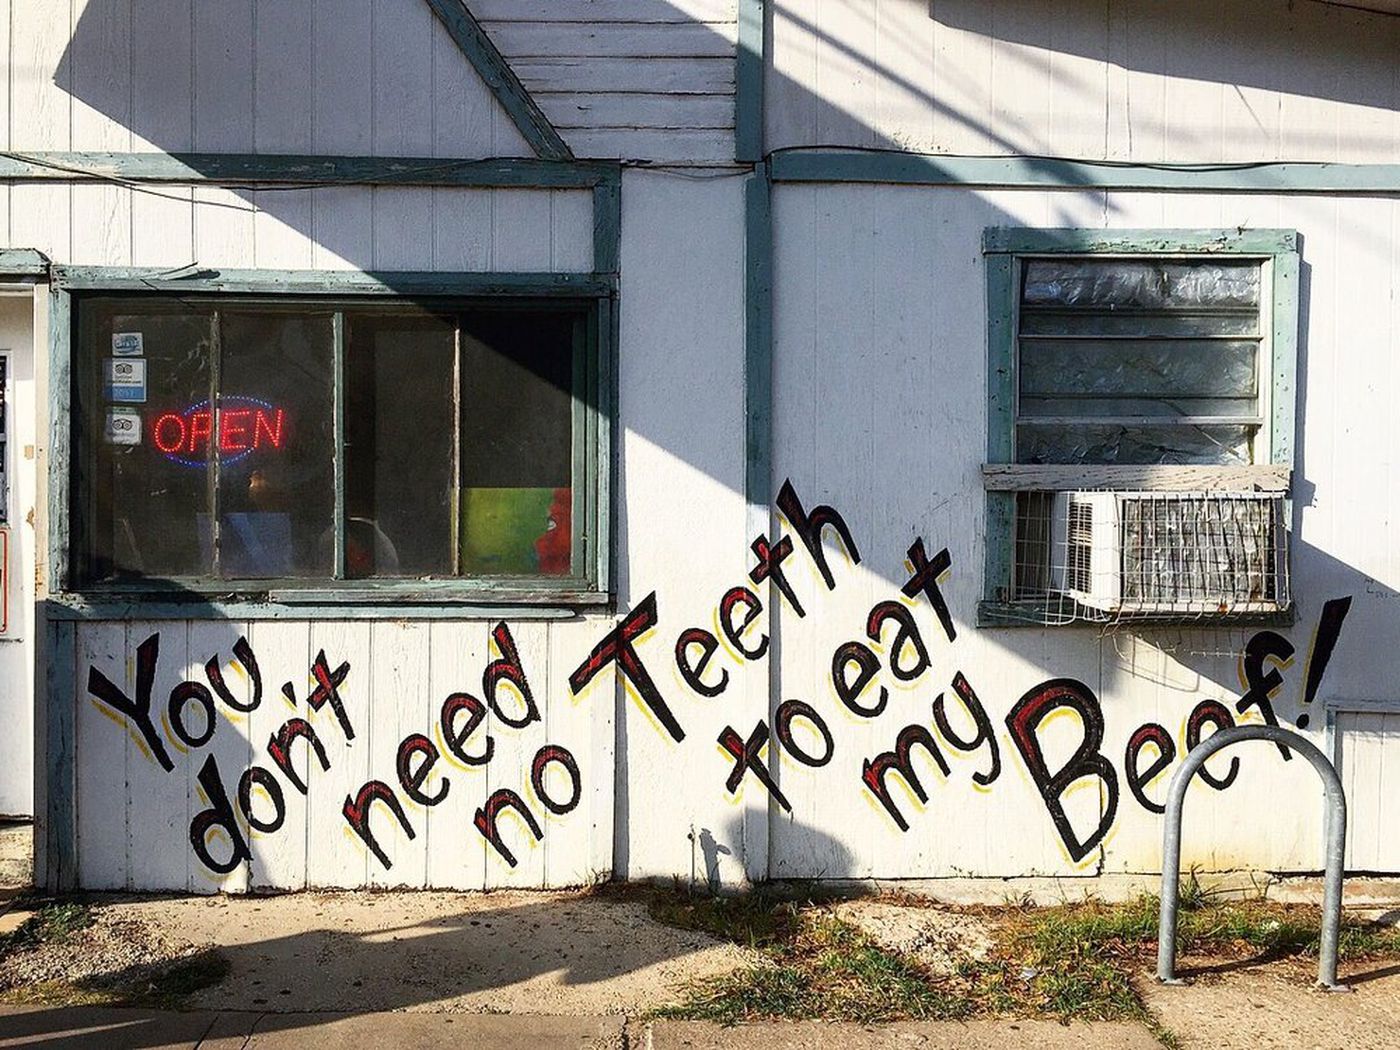 OPEN
You don't need no Teeth to eat my Beef!